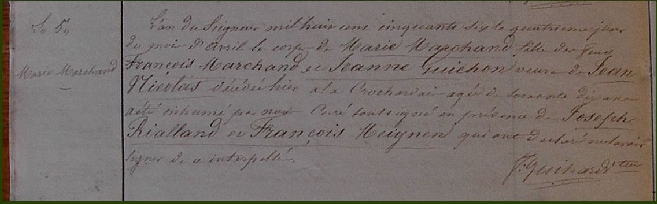 Marie Marchand
L'an du Seigneur mil huit cent cinquante six le quatrieme jour
du moi d'avril le corp de Marie Marchand fille de feux
François Marchand et Jeanne Guichon veuve de Jean
Nicolas décédée hier a la agée de soixante dix ans
a été inhumé par nous Curé soussigné en présence de Joseph
Rialland et François Meignen qui ont declaré ne savoir
signer de ce interpellé.
J. Guihard